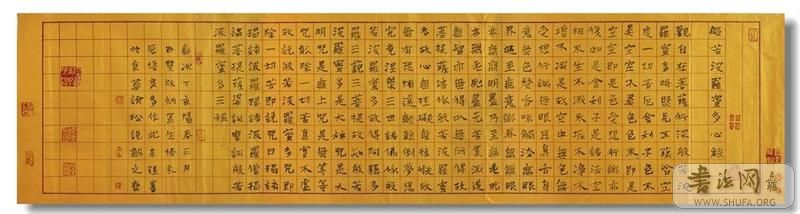 般若波羅蜜多心經
觀自在菩薩行深般若波
羅蜜多時照見五蘊皆空
度一切苦厄舍利子色不
異空空不異色色即是
空空即是色受想行識亦
復如是舍利子是諸法空
相不生不滅不垢不淨不
增不減是故空中無色無
受想行識無眼耳鼻舌身
意無色聲香味觸法無眼
界乃至無意識界無無明
亦無無明盡乃至無老死
亦無老死盡無苦集滅道
無智亦無得以無所得故
菩提薩埵依般若波羅蜜
多故心無罣礙無罣礙故
無有恐怖遠離顛倒夢想
究竟涅槃三世諸佛依般
若波羅蜜多故得阿耨多
羅三藐三菩提故知般若
波羅蜜多是大神咒是大
明咒是無上咒是無等等
咒能除一切苦真實不虛
故說般若波羅蜜多咒即
說咒曰揭諦
揭諦波羅揭諦波羅僧揭
諦菩提薩婆訶摩訶般若
波羅蜜多三種
歲次丁亥陽春三月
西雙版納
書法网
WWW.SHUFA.ORG